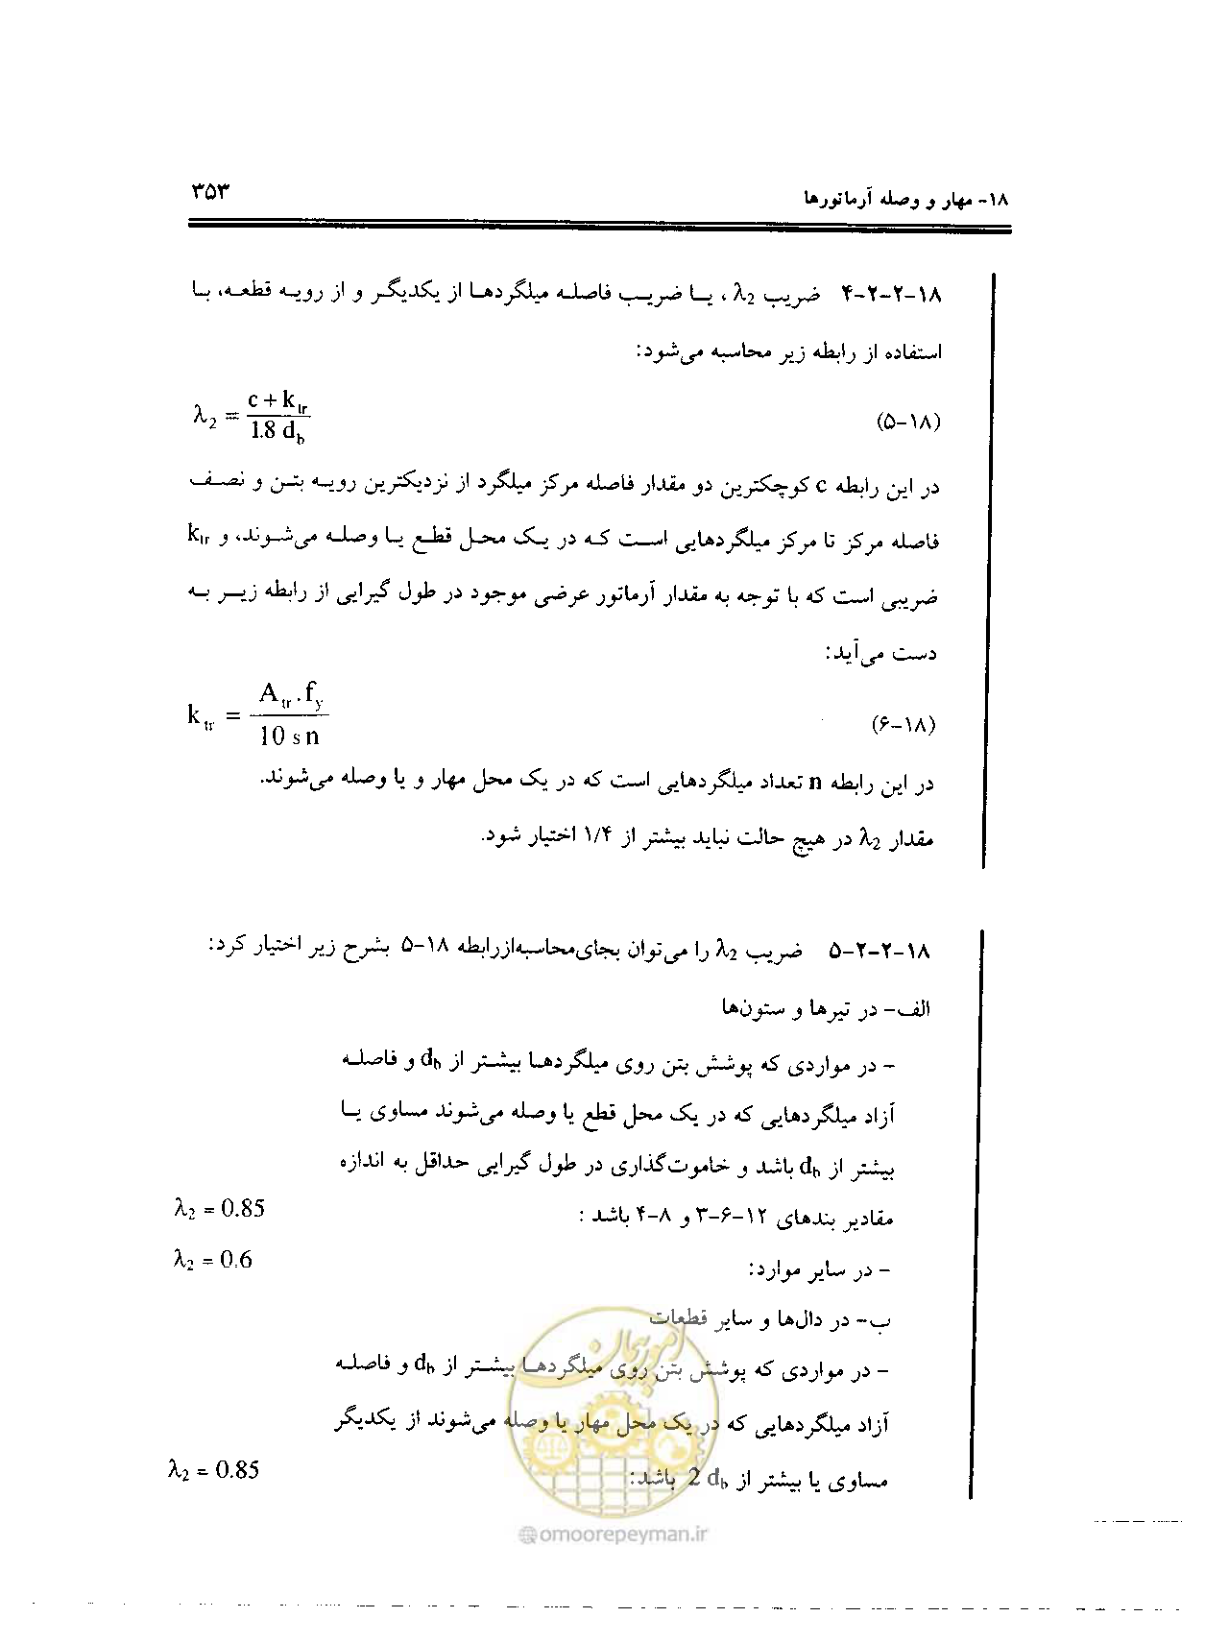 ۱۸- مهار و وصله آرماتورها ۳۵۳
۱۸-۲-۲-۴ ضریب λ2 ، یا ضریب فاصله میلگردها از یکدیگر و از رویه قطعه، با
استفاده از رابطه زیر محاسبه می‌شود:
(۱۸-۵) λ2 = (c + ktr) / (1.8 db)
در این رابطه c کوچکترین دو مقدار فاصله مرکز میلگرد از نزدیکترین رویه بتن و نصف
فاصله مرکز تا مرکز میلگردهایی است که در یک محل قطع یا وصله می‌شوند، و ktr
ضریبی است که با توجه به مقدار آرماتور عرضی موجود در طول گیرایی از رابطه زیر به
دست می‌آید:
(۱۸-۶) ktr = (Atr . fy) / (10 s n)
در این رابطه n تعداد میلگردهایی است که در یک محل مهار و یا وصله می‌شوند.
مقدار λ2 در هیچ حالت نباید بیشتر از ۱/۴ اختیار شود.
۱۸-۲-۲-۵ ضریب λ2 را می‌توان بجای‌محاسبه‌ازرابطه ۱۸-۵ بشرح زیر اختیار کرد:
الف- در تیرها و ستون‌ها
- در مواردی که پوشش بتن روی میلگردها بیشتر از db و فاصله
آزاد میلگردهایی که در یک محل قطع یا وصله می‌شوند مساوی یا
بیشتر از db باشد و خاموت‌گذاری در طول گیرایی حداقل به اندازه
مقادیر بندهای ۱۲-۶-۳ و ۸-۴ باشد : λ2 = 0.85
- در سایر موارد: λ2 = 0.6
ب- در دال‌ها و سایر قطعات
- در مواردی که پوشش بتن روی میلگردها بیشتر از db و فاصله
آزاد میلگردهایی که در یک محل مهار یا وصله می‌شوند از یکدیگر
مساوی یا بیشتر از 2 db باشد: λ2 = 0.85
امور پیمان
@omoorepeyman.ir